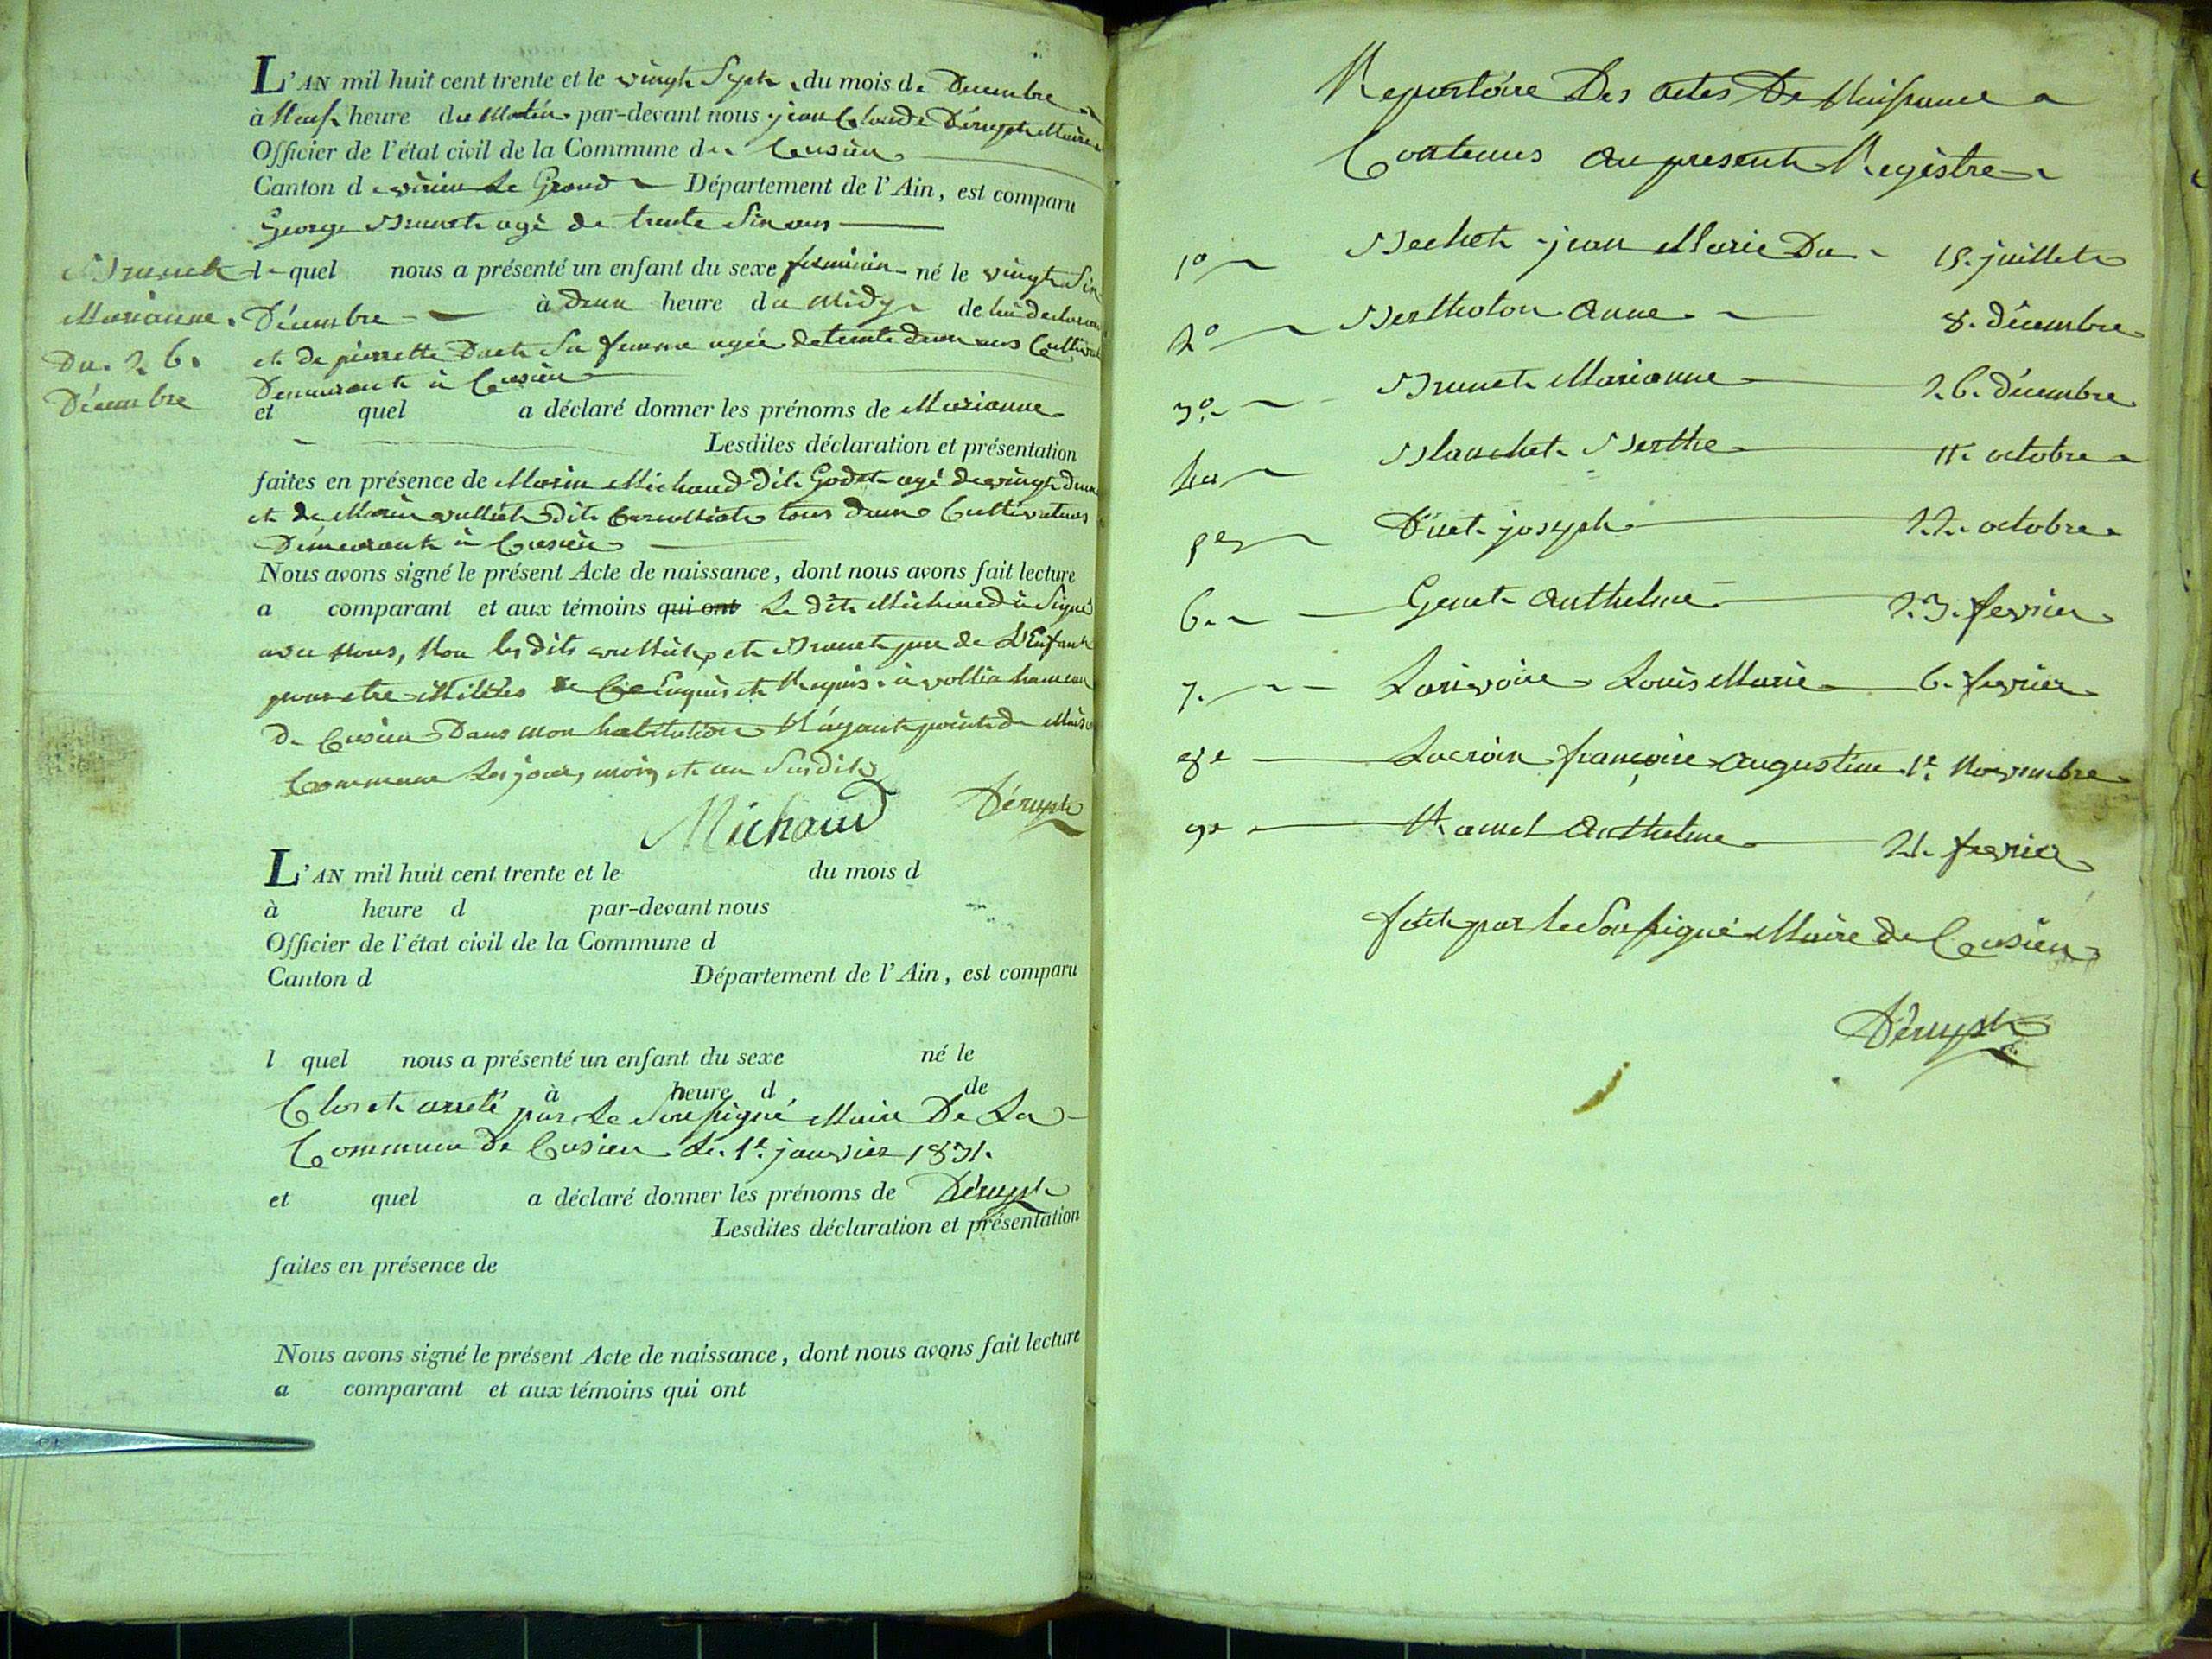 L'AN mil huit cent trente et le vingt Sept du mois de Decembre
à Neuf heure du Matin par-devant nous jean Claude Dérupt Maire
Officier de l'état civil de la Commune de Ceusieu
Canton de virieu Le Grand Département de l'Ain, est comparu
George Brunet agé de trente Six ans
Brunet
Marianne.
Du. 26.
Décembre
lequel nous a présenté un enfant du sexe feminin né le vingt Six
Décembre à deux heure du Midy de lui declarant
et de pierrette Duet Sa femme agée de trente deux ans
Demeurant à Cusieu
et quel a déclaré donner les prénoms de Marianne
Lesdites déclaration et présentation
faites en présence de Marin Michaud dit Godet agé de vingt deux
et de Marin dit tous deux Cultivateurs
Demeurant à Cusieu
Nous avons signé le présent Acte de naissance, dont nous avons fait lecture
a comparant et aux témoins qui ont Le dit Michaud à Signé
avec Nous, Non les dits et Brunet pere de L'Enfant
pour etre illitérés de Ce Enquis et Requis. à vollia hameau
De Cusieu Dans mon habitation N'ayant point de Maison
Commune Les jour, mois et an Susdits
Michaud Dérupt
L'AN mil huit cent trente et le du mois d
à heure d par-devant nous
Officier de l'état civil de la Commune d
Canton d Département de l'Ain, est comparu
l quel nous a présenté un enfant du sexe né le
à heure d de
Clos et arreté par Le Soussigné Maire De La
Commune de Cusieu Le. 1er janvier 1831.
et quel a déclaré donner les prénoms de Dérupt
Lesdites déclaration et présentation
faites en présence de
Nous avons signé le présent Acte de naissance, dont nous avons fait lecture
a comparant et aux témoins qui ont
Repertoire Des actes De Naissance
Contenus au present Registre
1o Bechet jean Marie Du 15. juillet
2o Bertholon Anne 8. décembre
3o Brunet Marianne 26. décembre
4o Blanchet Berthe 11. octobre
5e Duet joseph 22. octobre
6. Genet Anthelme 23. fevrier
7. Larivoire Louis Marie 6. fevrier
8e Lacroix françoise Augustine 1er Novembre
9e Ramel Anthelme 21. fevrier
fait par le Soussigné Maire de Cusieu
Dérupt